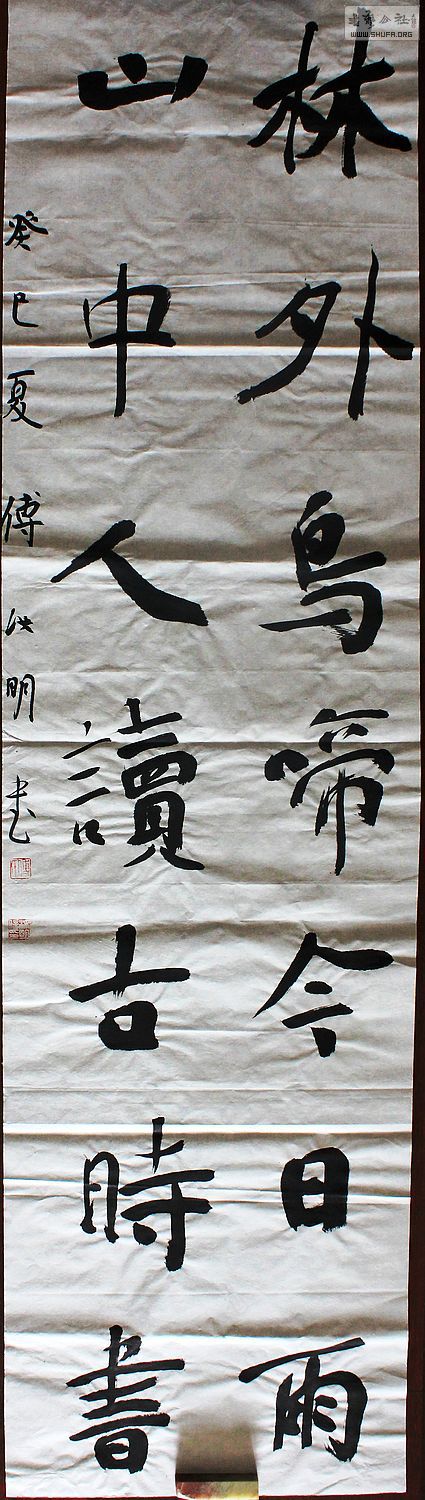 林外鸟啼今日雨
山中人讀古時書
癸巳夏 傅洪明书
WWW.SHUFA.ORG